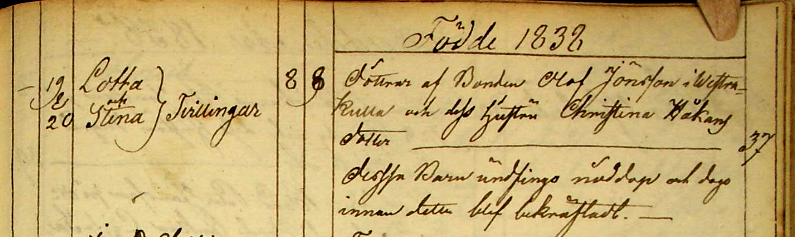 Födde 1838
19 Lotta 8 8 Döttrar af Bonden Olof Jönsson i Westra-
& och Tvillingar kulla och dess Hustru Christina Håkans
20 Stina dotter 37
dessa Barn undfingo nöddop och dogo
innan detta blef bekräftadt.